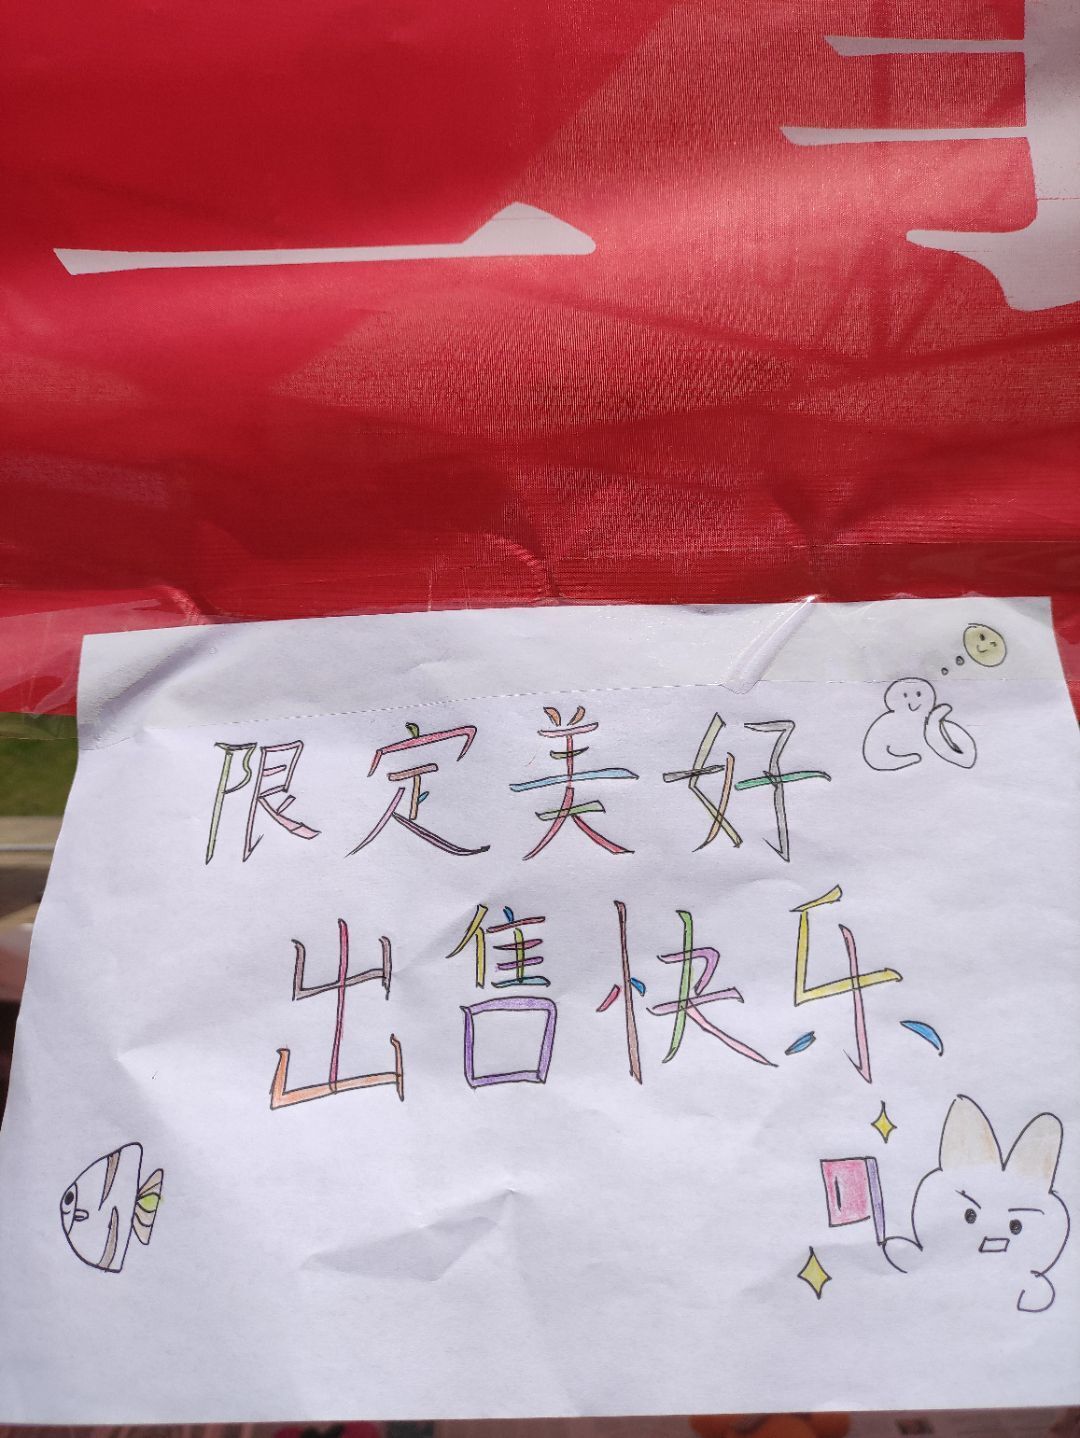 限定美好
出售快乐